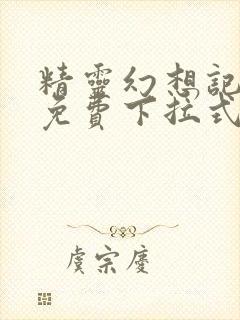 精靈幻想記
免費下拉式
虞宗慶